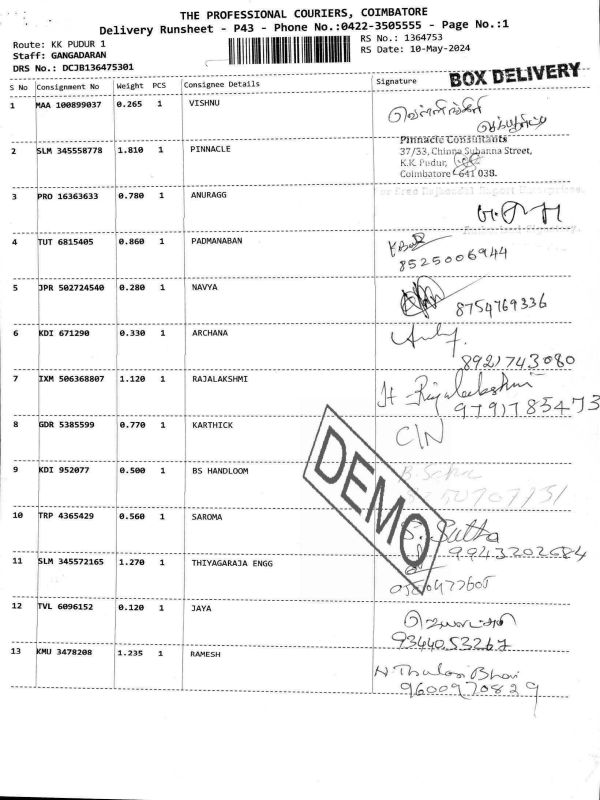 THE PROFESSIONAL COURIERS, COIMBATORE
Delivery Runsheet - P43 - Phone No.:0422-3505555 - Page No.:1
Route: KK PUDUR 1
Staff: GANGADARAN
DRS No.: DCJB136475301
RS No.: 1364753
RS Date: 10-May-2024
BOX DELIVERY
S No Consignment No Weight PCS Consignee Details Signature
1 MAA 100899037 0.265 1 VISHNU
2 SLM 345558778 1.810 1 PINNACLE
Pinnacle Consultants
37/33, Chinna Subanna Street,
K.K. Pudur,
Coimbatore - 641 038.
3 PRO 16363633 0.780 1 ANURAGG
4 TUT 6815405 0.860 1 PADMANABAN
8525006944
5 JPR 502724540 0.280 1 NAVYA
8754769336
6 KDI 671290 0.330 1 ARCHANA
8921743080
7 IXM 506368807 1.120 1 RAJALAKSHMI
9791785473
8 GDR 5385599 0.770 1 KARTHICK
C/N
9 KDI 952077 0.500 1 BS HANDLOOM
10 TRP 4365429 0.560 1 SAROMA
S. Sutha
9943202684
11 SLM 345572165 1.270 1 THIYAGARAJA ENGG
12 TVL 6096152 0.120 1 JAYA
9344053267
13 KMU 3478208 1.235 1 RAMESH
N Thulasi Bhai
9600970829
DEMO